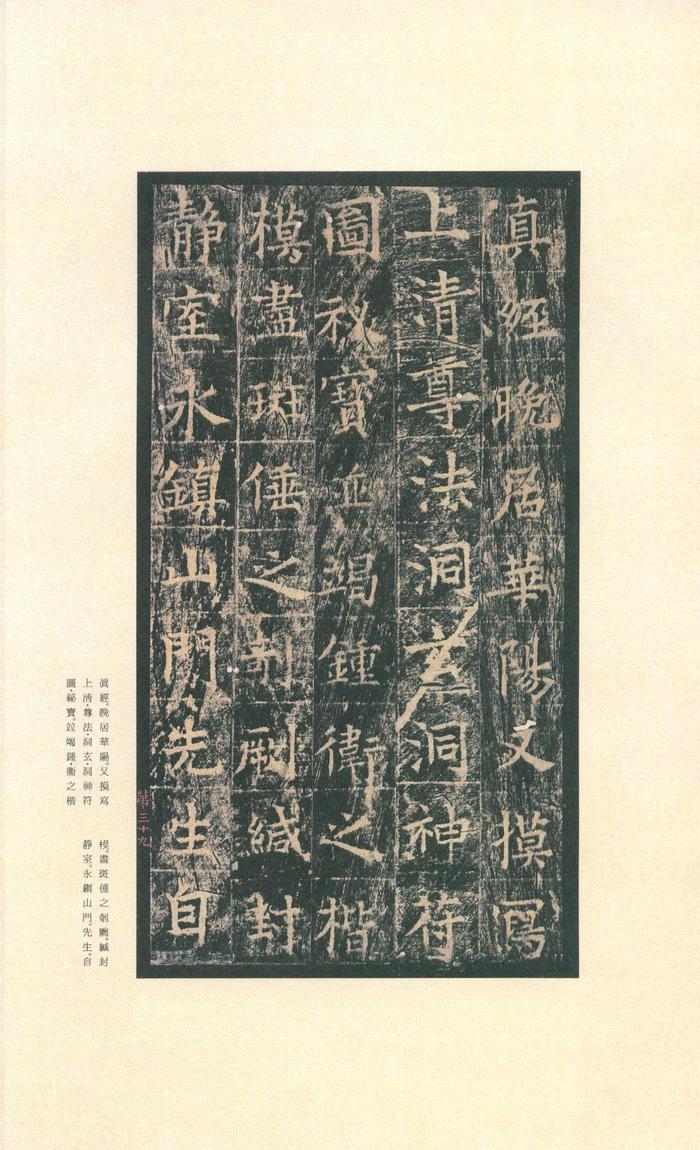 真經晚居華陽又摸寫
上清尊法洞玄洞神符
圖祕寶並竭鍾衛之楷
模盡班倕之剞劂緘封
靜室永鎮山門先生自
第三十九
眞經。晚居華陽。又摸寫
上清·尊法·洞玄·洞神符
圖·祕寶。竝竭鍾·衞之楷
模。盡班倕之剞劂。緘封
靜室。永鎭山門。先生。自